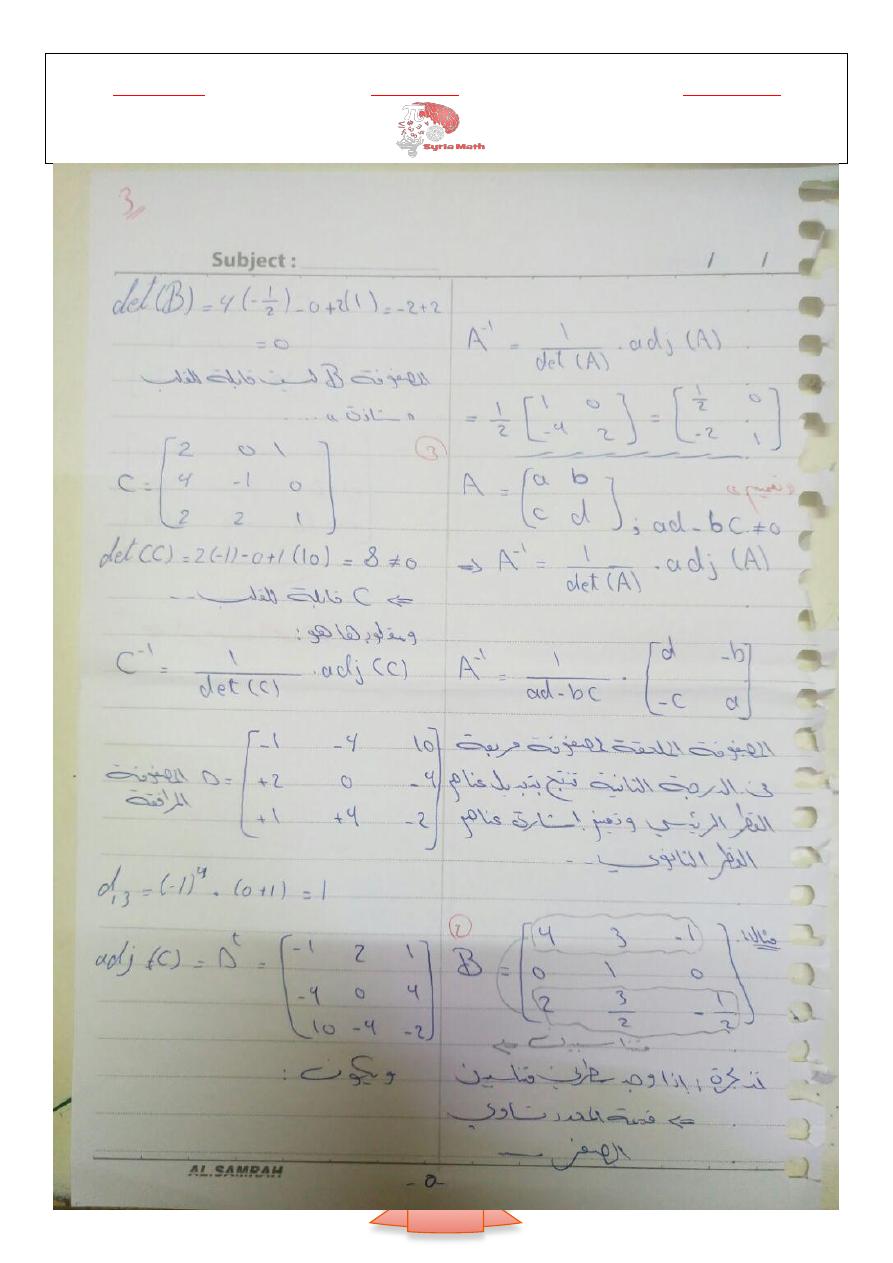 Syria Math
3
Subject :
/ /
A⁻¹ = 1/det(A) . adj (A)
= 1/2 [1 0; -4 2] = [1/2 0; -2 1]
A = [a b; c d] ; ad - bc ≠ 0
⇒ A⁻¹ = 1/det(A) . adj (A)
A⁻¹ = 1/ad-bc . [d -b; -c a]
المصفوفة الملحقة لمصفوفة مربعة
من الدرجة الثانية تنتج بتبديل عناصر
القطر الرئيسي وتغيير إشارة عناصر
القطر الثانوي ..
مثال:
② B = [4 3 -1; 0 1 0; 2 3/2 -1/2]
متناسبين
تذكرة : إذا وجد سطرين متناسبين
⇐ قيمة المحدد تساوي
الصفر
det(B) = 4(-1/2) - 0 + 2(1) = -2+2
= 0
المصفوفة B ليست قابلة للقلب
③ C = [2 0 1; 4 -1 0; 2 2 1]
det(C) = 2(-1) - 0 + 1(10) = 8 ≠ 0
⇐ C قابلة للقلب ...
ومقلوبها هو :
C⁻¹ = 1/det(C) . adj (C)
D = [-1 -4 10; +2 0 -4; +1 +4 -2] المصفوفة
المرافقة
d₁₃ = (-1)⁴ . (0+1) = 1
adj (C) = Dᵗ = [-1 2 1; -4 0 4; 10 -4 -2]
ويكون :
AL.SAMRAH
-5-